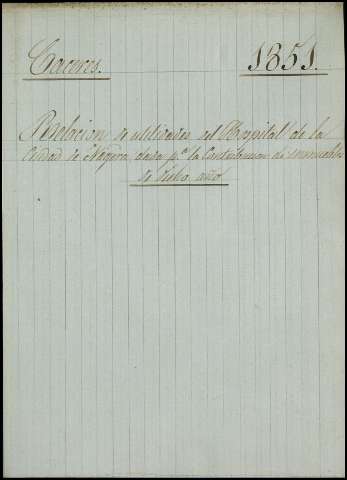 Caceres. 1851.
Relacion de utilidades del Hospital de la
Ciudad de Nágera, dada pª la Contribucion de inmuebles
de dicho año